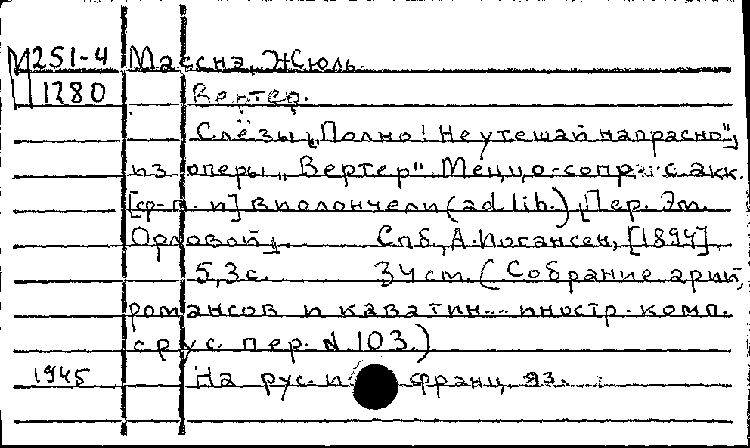 М251-4 Массна, Жюль.
1280 Вертер.
Слёзы „Полно! Не утешай напрасно",
из оперы „Вертер". Меццо-сопр. с акк.
[ф-п. и] виолончели (ad lib.) Пер. Эм.
Орловой. Спб., А. Иогансен, [1894].
5,3 с. 34 cm. (Собрание арий,
романсов и каватин иностр. комп.
с рус. пер. № 103.)
1945 На рус. и франц. яз.